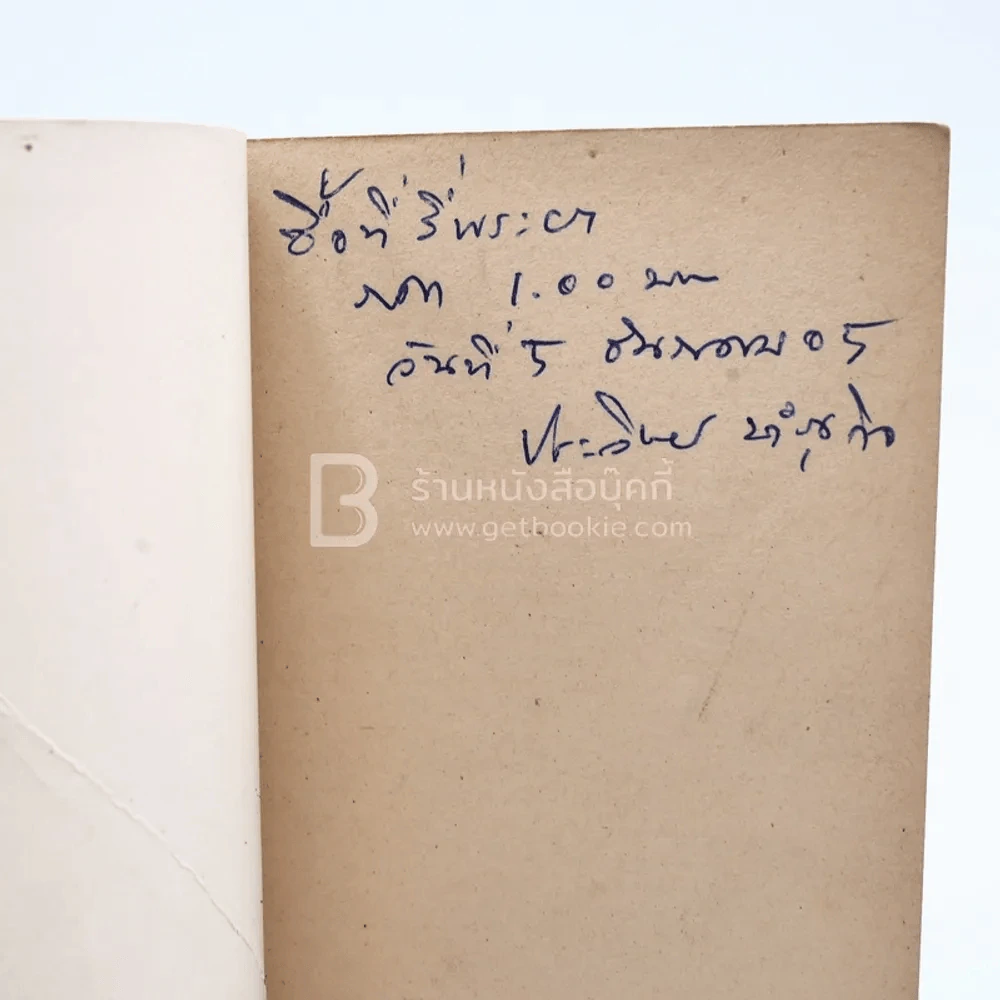 ซื้อที่ สี่พระยา
ราคา 1.00 บาท
วันที่ 5 ธันวาคม 05
ร้านหนังสือบุ๊คกี้
www.getbookie.com